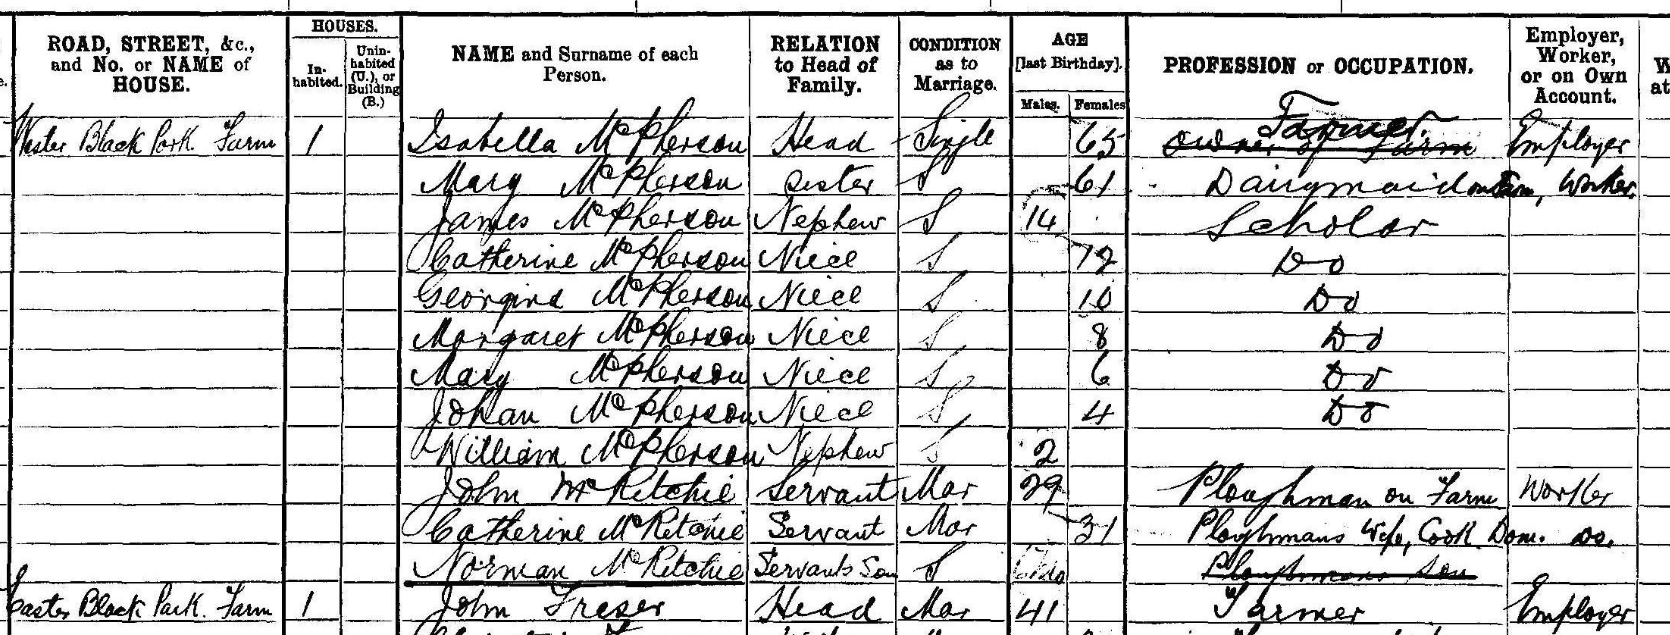 HOUSES.
ROAD, STREET, &c., and No. or NAME of HOUSE. In-habited. Unin-habited (U.), or Building (B.) NAME and Surname of each Person. RELATION to Head of Family. CONDITION as to Marriage. AGE [last Birthday]. Males. Females PROFESSION or OCCUPATION. Employer, Worker, or on Own Account. W at
Farmer.
Wester Black Park Farm 1 Isabella McPherson Head Single 65 Owner of Farm Employer
Mary McPherson Sister S 61 Dairymaid on Farm, Worker.
James McPherson Nephew S 14 Scholar
Catherine McPherson Niece S 12 Do
Georgina McPherson Niece S 10 Do
Margaret McPherson Niece S 8 Do
Mary McPherson Niece S 6 Do
Johan McPherson Niece S 4 Do
William McPherson Nephew S 2
John McRitchie Servant Mar 29 Ploughman on Farm Worker
Catherine McRitchie Servant Mar 31 Ploughmans Wife, Cook Dom. do.
Norman McRitchie Servants Son S Ploughmans Son
Easter Black Park. Farm 1 John Fraser Head Mar 41 Farmer Employer